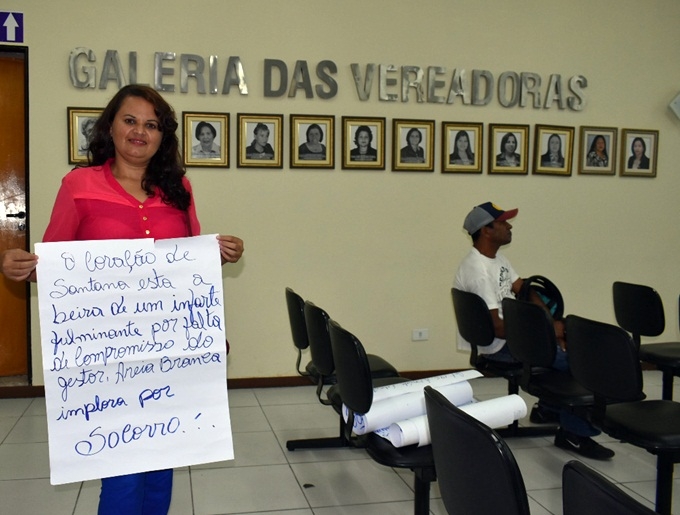 GALERIA DAS VEREADORAS
O Coração de
Santana esta a
beira de um infarte
fulminante por falta
de Compromisso do
gestor, Areia Branca
implora por
Socorro...